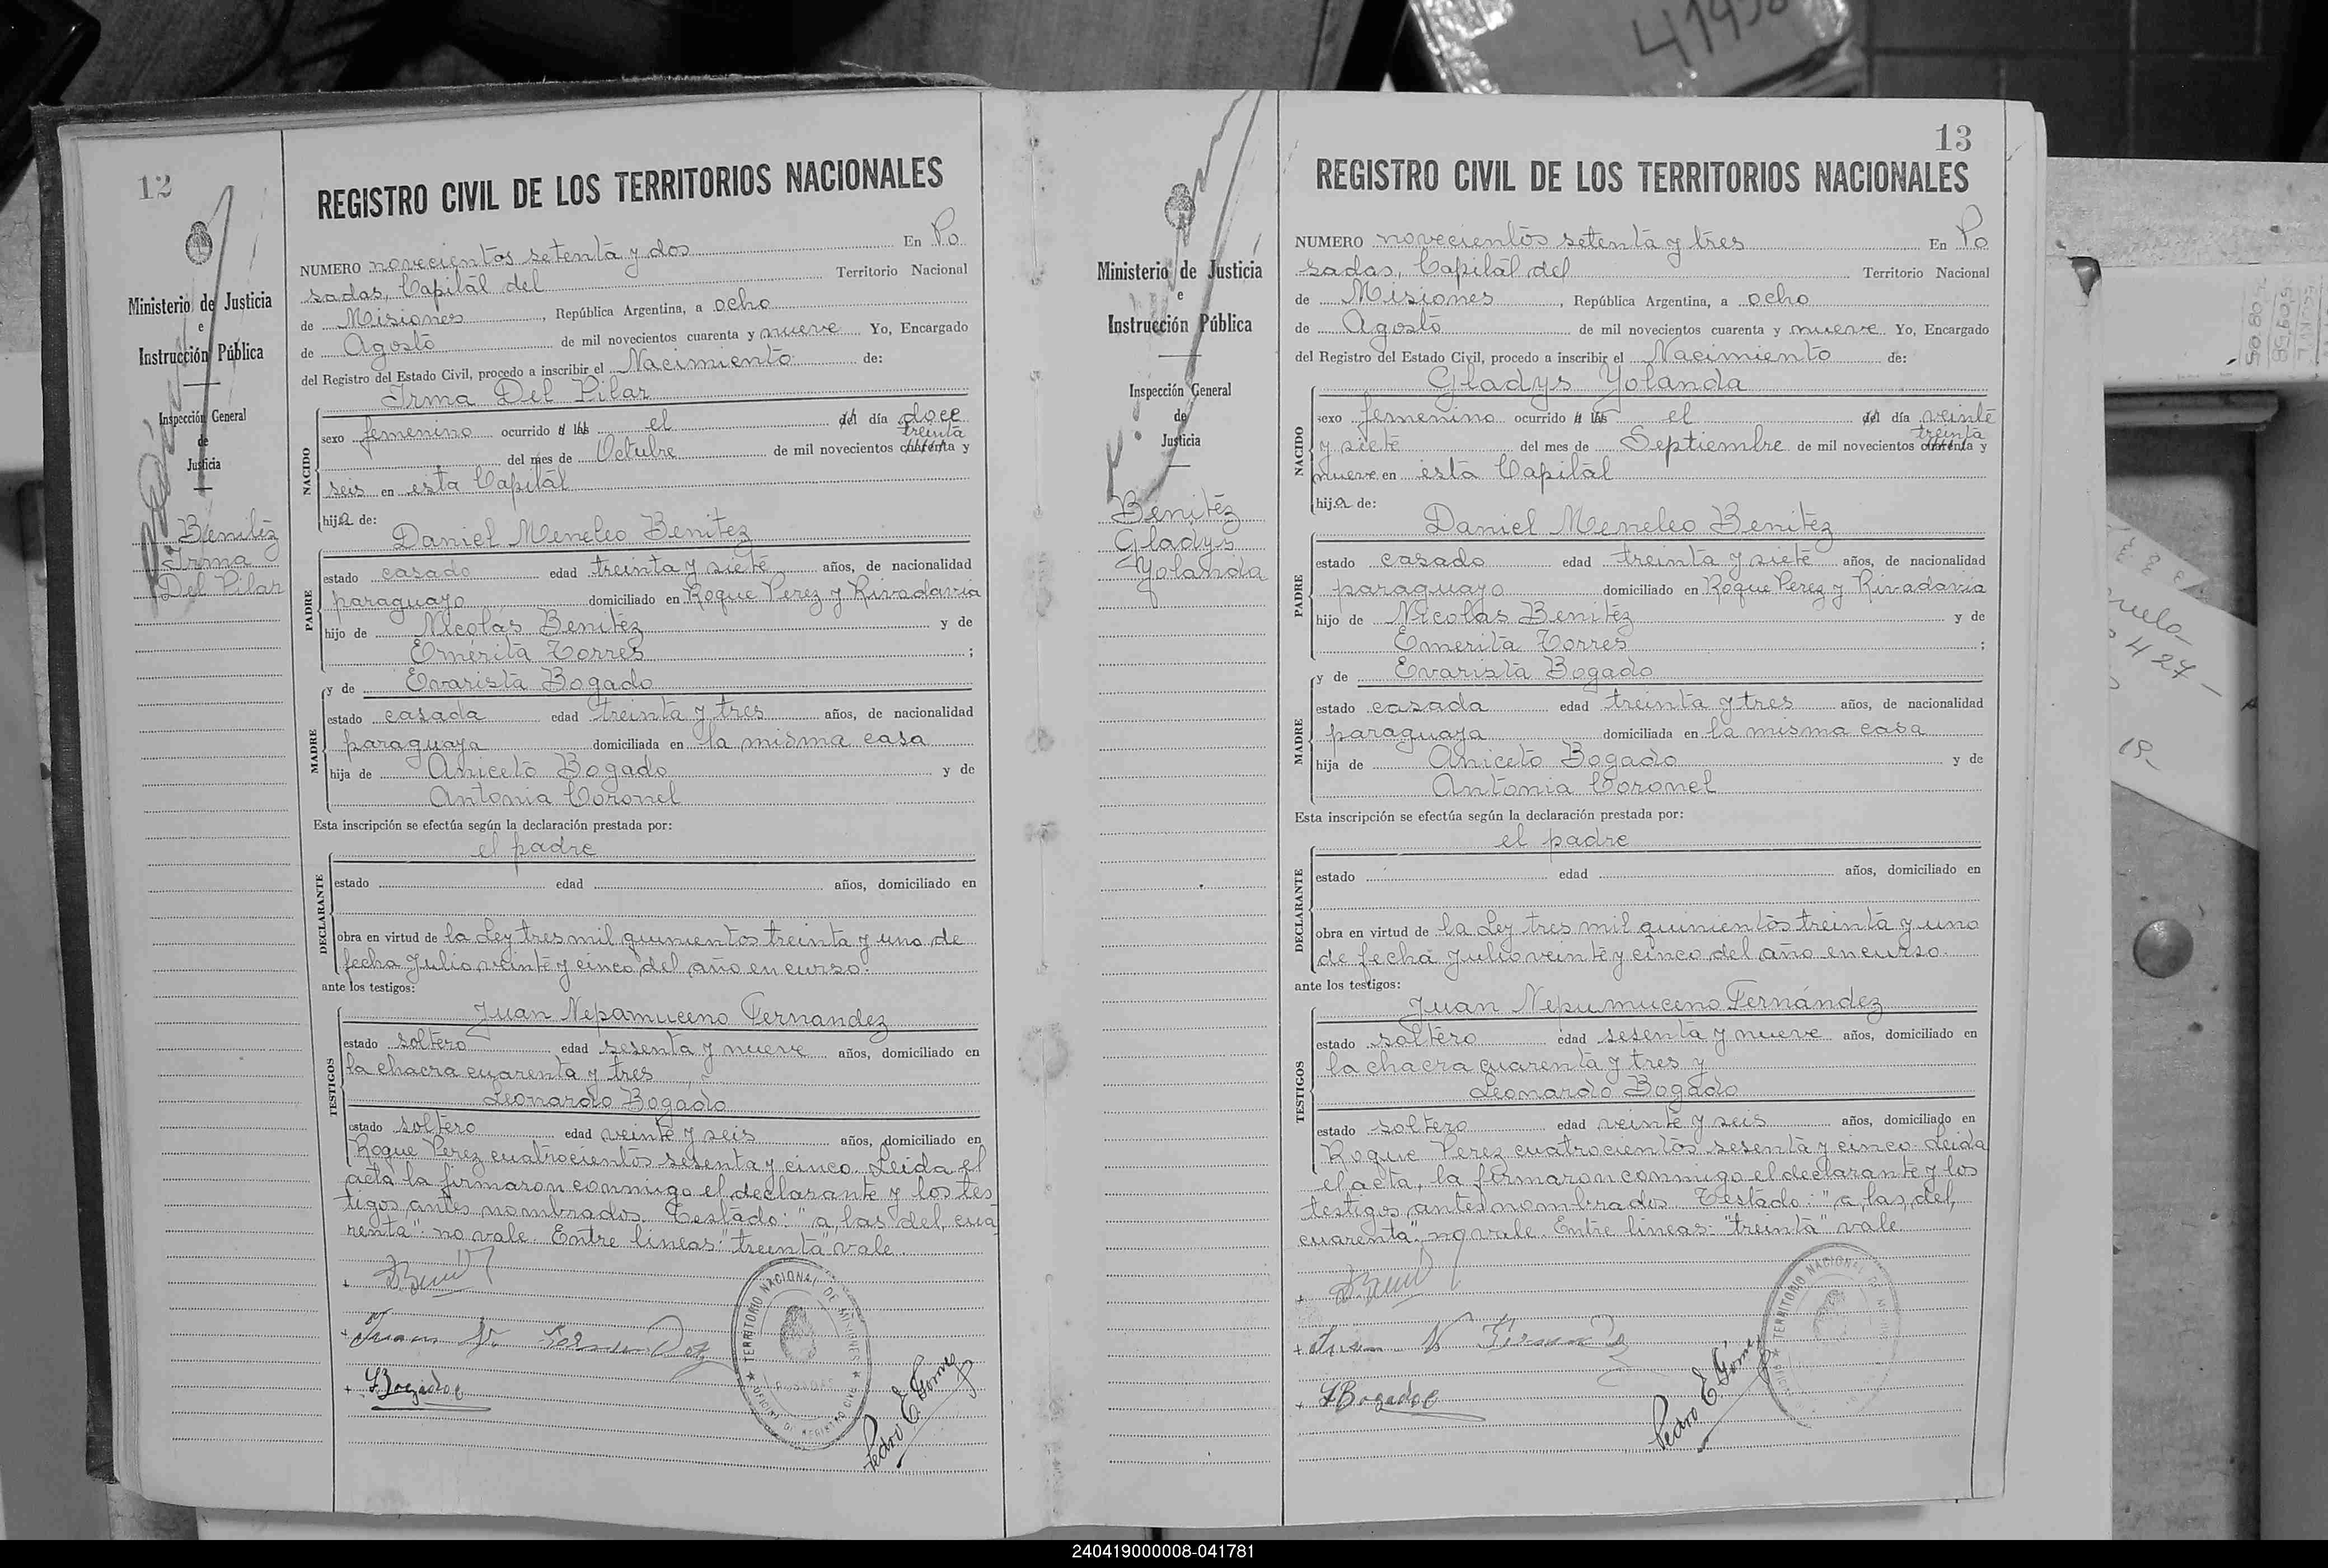 41950
12
REGISTRO CIVIL DE LOS TERRITORIOS NACIONALES
Ministerio de Justicia
e
Instrucción Pública
Inspección General
de
Justicia
Benitéz
Irma
Del Pilar
NUMERO novecientos setenta y dos En Po
sadas, Capital del Territorio Nacional
de Misiones, República Argentina, a ocho
de Agosto de mil novecientos cuarenta y nueve Yo, Encargado
del Registro del Estado Civil, procedo a inscribir el Nacimiento de:
Irma Del Pilar
NACIDO
sexo femenino ocurrido a las el del día doce
treinta
del mes de Octubre de mil novecientos cuarenta y
seis en esta Capital
hija de:
Daniel Meneleo Benitez
PADRE
estado casado edad treinta y siete años, de nacionalidad
paraguayo domiciliado en Roque Perez y Rivadavia
hijo de Nicolás Benitéz y de
Emerita Torres ;
y de Evarista Bogado
MADRE
estado casada edad treinta y tres años, de nacionalidad
paraguaya domiciliada en la misma casa
hija de Aniceto Bogado y de
Antonia Coronel
Esta inscripción se efectúa según la declaración prestada por:
el padre
DECLARANTE
estado edad años, domiciliado en
obra en virtud de la Ley tres mil quinientos treinta y uno de
fecha Julio veinte y cinco del año en curso.
ante los testigos:
Juan Nepamuceno Fernandez
TESTIGOS
estado soltero edad sesenta y nueve años, domiciliado en
la chacra cuarenta y tres
Leonardo Bogado
estado soltero edad veinte y seis años, domiciliado en
Roque Perez cuatrocientos sesenta y cinco. Leida el
acta la firmaron conmigo el declarante y los tes
tigos antes nombrados. Testado: "a, las, del, cua
renta": no vale. Entre lineas: "treinta" vale.
Juan N. Fernandez
LBogado
TERRITORIO NACIONAL DE MISIONES
POSADAS
OFICINA DE REGISTRO CIVIL
Pedro E. Gomez
13
REGISTRO CIVIL DE LOS TERRITORIOS NACIONALES
Ministerio de Justicia
e
Instrucción Pública
Inspección General
de
Justicia
Benitéz
Gladys
Yolanda
NUMERO novecientos setenta y tres En Po
sadas, Capital del Territorio Nacional
de Misiones, República Argentina, a ocho
de Agosto de mil novecientos cuarenta y nueve Yo, Encargado
del Registro del Estado Civil, procedo a inscribir el Nacimiento de:
Gladys Yolanda
NACIDO
sexo femenino ocurrido a las el del día veinte
treinta
y siete del mes de Septiembre de mil novecientos cuarenta y
nueve en esta Capital
hija de:
Daniel Meneleo Benitez
PADRE
estado casado edad treinta y siete años, de nacionalidad
paraguayo domiciliado en Roque Perez y Rivadavia
hijo de Nicolás Benitéz y de
Emerita Torres ;
y de Evarista Bogado
MADRE
estado casada edad treinta y tres años, de nacionalidad
paraguaya domiciliada en la misma casa
hija de Aniceto Bogado y de
Antonia Coronel
Esta inscripción se efectúa según la declaración prestada por:
el padre
DECLARANTE
estado edad años, domiciliado en
obra en virtud de la Ley tres mil quinientos treinta y uno
de fecha Julio veinte y cinco del año en curso.
ante los testigos:
Juan Nepumuceno Fernández
TESTIGOS
estado soltero edad sesenta y nueve años, domiciliado en
la chacra cuarenta y tres y
Leonardo Bogado
estado soltero edad veinte y seis años, domiciliado en
Roque Perez cuatrocientos sesenta y cinco. Leida
el acta, la firmaron conmigo el declarante y los
testigos antes nombrados. Testado: "a, las, del,
cuarenta", no vale. Entre lineas: "treinta" vale
Juan N Fernandez
LBogado
TERRITORIO NACIONAL DE MISIONES
Pedro E. Gomez
240419000008-041781